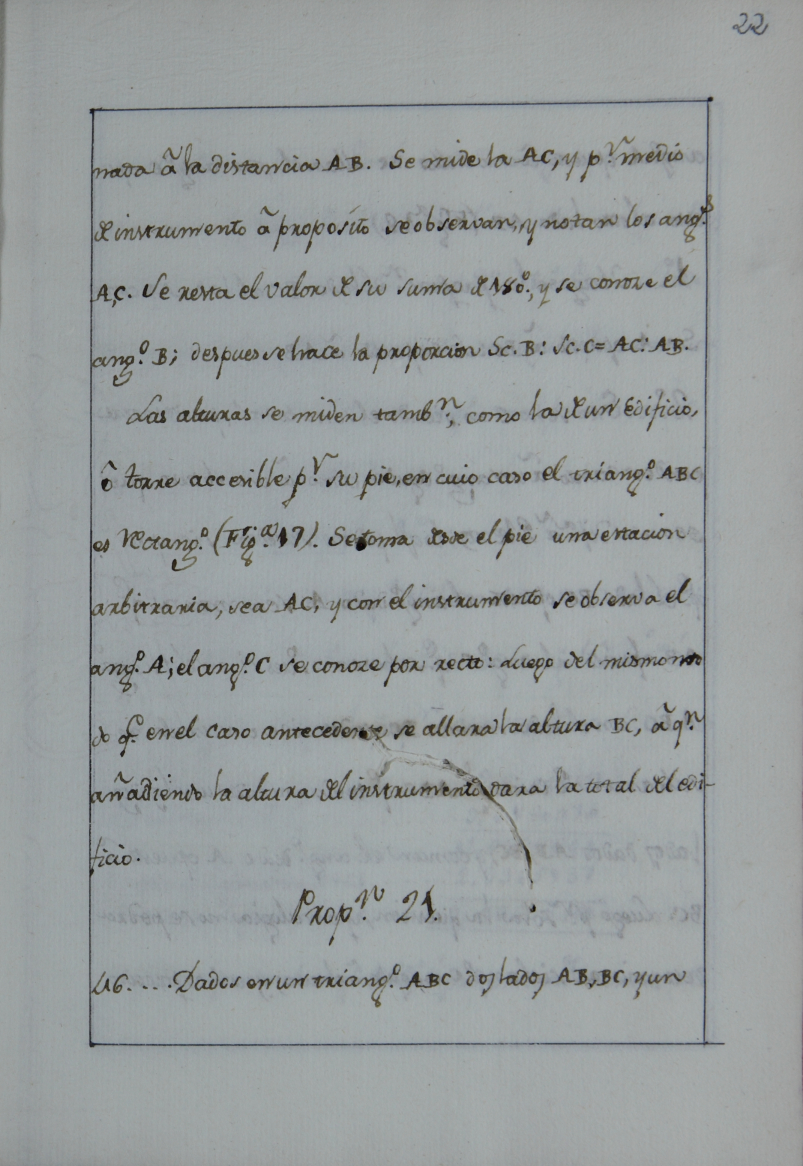 22
nada â la distancia AB. Se mide la AC, y p.r medio
de instrumento â proposito se observan, y notan los ang.s
A,C. Se resta el valor de su suma de 180º, y se conoze el
ang.º B; despues se hace la proporcion Sc. B: Sc. C = AC: AB.
Las alturas se miden tamb.n, como la de un edificio,
ô torre accesible p.r su pie, en cuio caso el triang.º ABC
es rectang.º (Fig.a 17). Se toma desde el pie una estacion
arbitraria, sea AC, y con el instrumento se observa el
ang.º A; el ang.º C se conoze por recto: Luego del mismo mo
do q.e en el caso antecedente se allara la altura BC, â q.n
añadiendo la altura del instrumento dara la total del edi-
ficio.
Prop.n 21.
46. ... Dados en un triang.º ABC dos lados AB, BC, y un